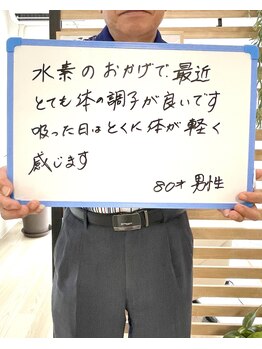 水素のおかげで、最近
とても体の調子が良いです
吸った日はとくに体が軽く
感じます
80才 男性